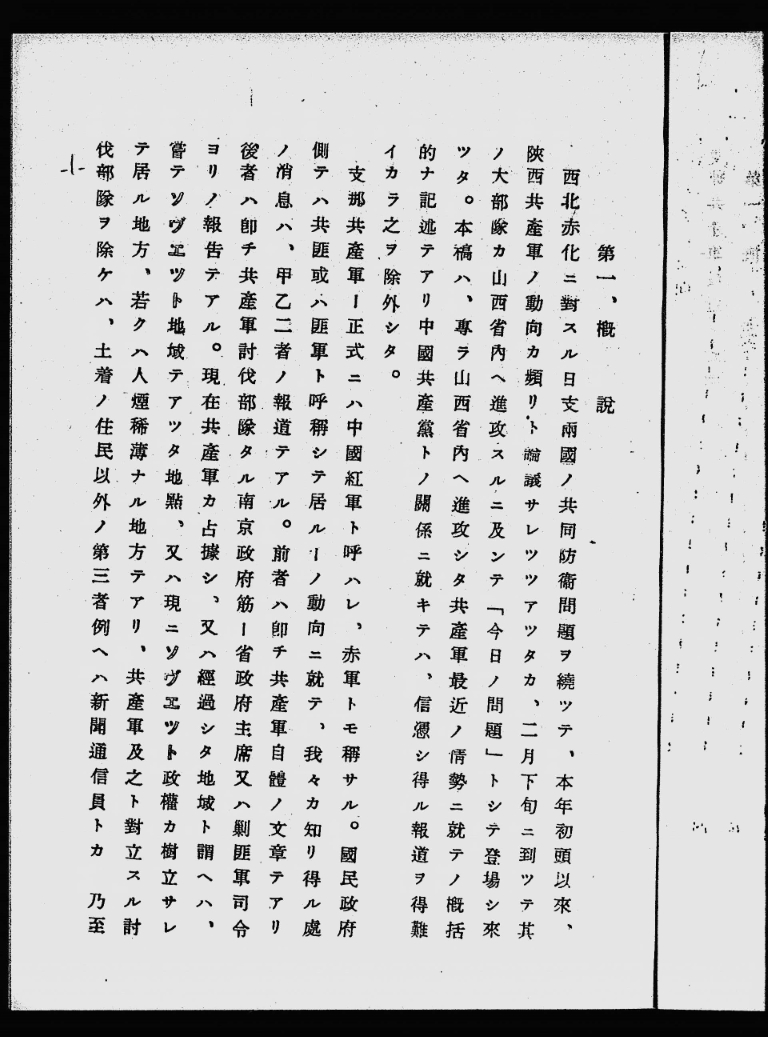 第一、概　說
西北赤化ニ對スル日支兩國ノ共同防衞問題ヲ繞ツテ、本年初頭以來、
陝西共產軍ノ動向カ頻リト論議サレツツアツタカ、二月下旬ニ到ツテ其
ノ大部隊カ山西省內ヘ進攻スルニ及ンテ「今日ノ問題」トシテ登場シ來
ツタ。本稿ハ、專ラ山西省內ヘ進攻シタ共產軍最近ノ情勢ニ就テノ概括
的ナ記述テアリ中國共產黨トノ關係ニ就キテハ、信憑シ得ル報道ヲ得難
イカラ之ヲ除外シタ。
支那共產軍ー正式ニハ中國紅軍ト呼ハレ、赤軍トモ稱サル。國民政府
側テハ共匪或ハ匪軍ト呼稱シテ居ルーノ動向ニ就テ、我々カ知リ得ル處
ノ消息ハ、甲乙二者ノ報道テアル。前者ハ卽チ共產軍自體ノ文章テアリ
後者ハ卽チ共產軍討伐部隊タル南京政府筋ー省政府主席又ハ剿匪軍司令
ヨリノ報告テアル。現在共產軍カ占據シ、又ハ經過シタ地域ト謂ヘハ、
嘗テソヴエツト地域テアツタ地點、又ハ現ニソヴエツト政權カ樹立サレ
テ居ル地方、若クハ人煙稀薄ナル地方テアリ、共產軍及之ト對立スル討
伐部隊ヲ除ケハ、土着ノ住民以外ノ第三者例ヘハ新聞通信員トカ　乃至
一